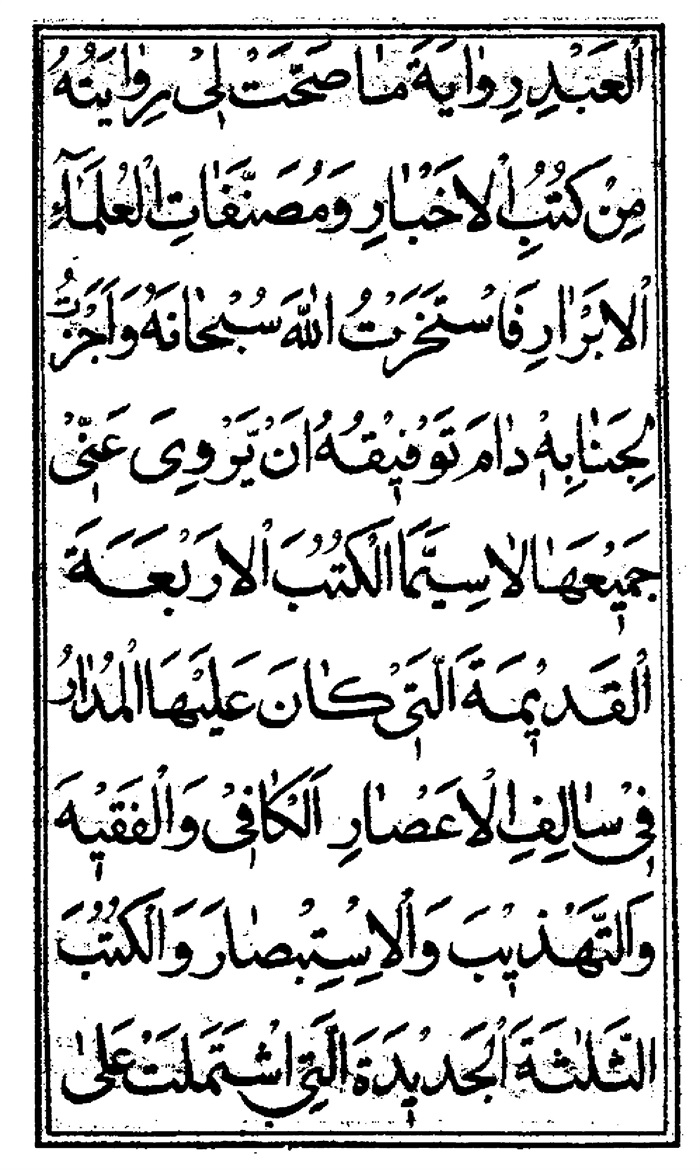 الْعَبْدِ رِوٰايَةَ مٰا صَحَّتْ لِىْ رِوٰايَتُهُ
مِنْ كُتُبِ الْاَخْبٰارِ وَمُصَنَّفٰاتِ الْعُلَمٰاءِ
الْاَبْرٰارِ فَاسْتَخَرْتُ اللهَ سُبْحٰانَهُ وَاَجَزْتُ
لِجَنٰابِهِ دٰامَ تَوْفِيْقُهُ اَنْ يَرْوِىَ عَنِّىْ
جَمِيْعَهٰا لٰاسِيَّمَا الْكُتُبَ الْاَرْبَعَةَ
الْقَدِيْمَةَ الَّتِىْ كٰانَ عَلَيْهَا الْمَدٰارُ
فِىْ سٰالِفِ الْاَعْصٰارِ اَلْكٰافِىْ وَالْفَقِيْهَ
وَالتَّهْذِيْبَ وَالْاِسْتِبْصٰارَ وَالْكُتُبَ
الثَّلٰثَةَ الْجَدِيْدَةَ الَّتِى اشْتَمَلَتْ عَلىٰ